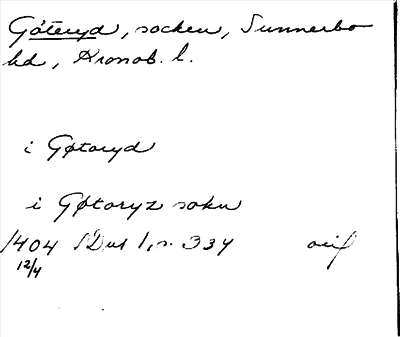 Göteryd, socken, Sunnerbo
hd, Kronob. l.
i Gøtoryd
i Gøtoryz sokn
1404 SDns 1, s. 334
12/4